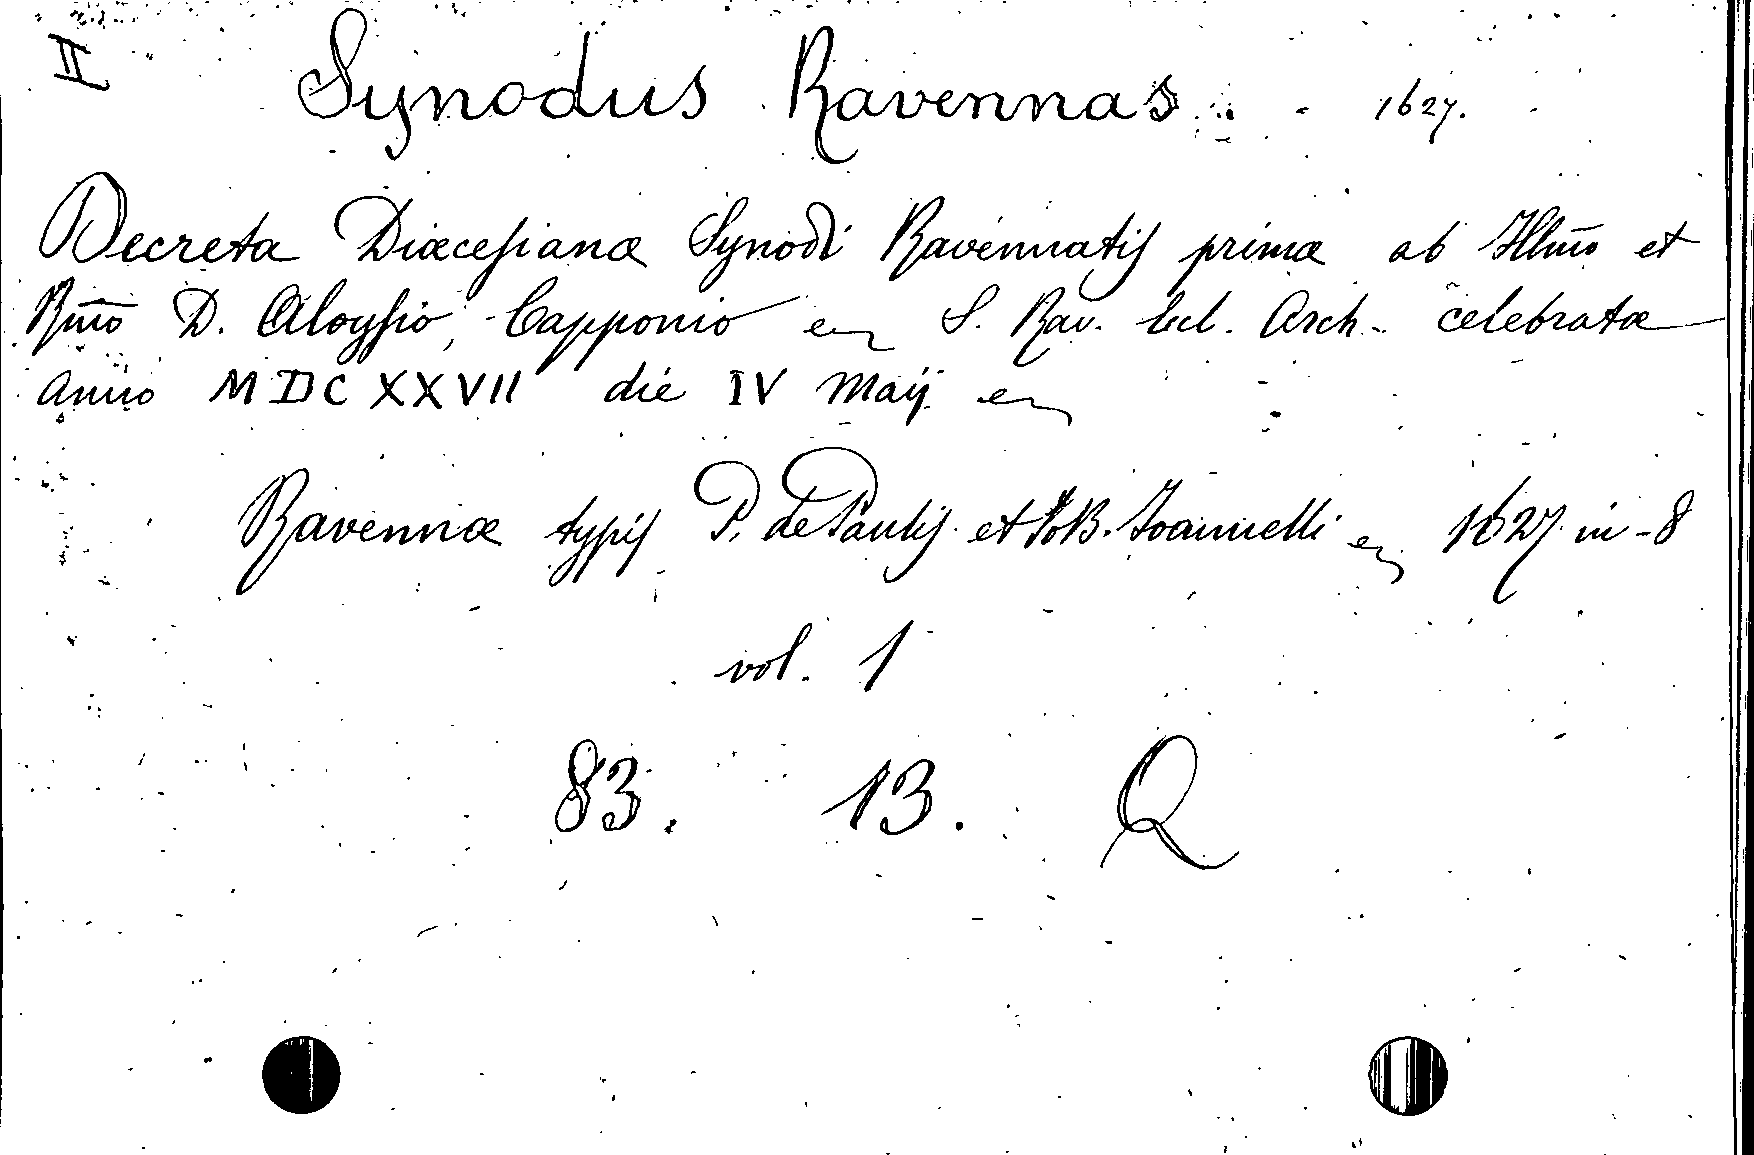 II Synodus Ravennas. 1627.
Decreta Diœcesianæ Synodi Ravennatis primæ ab Illmo et
Rmo D. Aloysio, Capponio en S. Rav. Eccl. Arch. celebratæ
anno MDCXXVII die IV Maij en
Ravennæ typis P. de Paulis et Io B. Joannelli en 1627 in-8
vol. 1
83. 13. Q